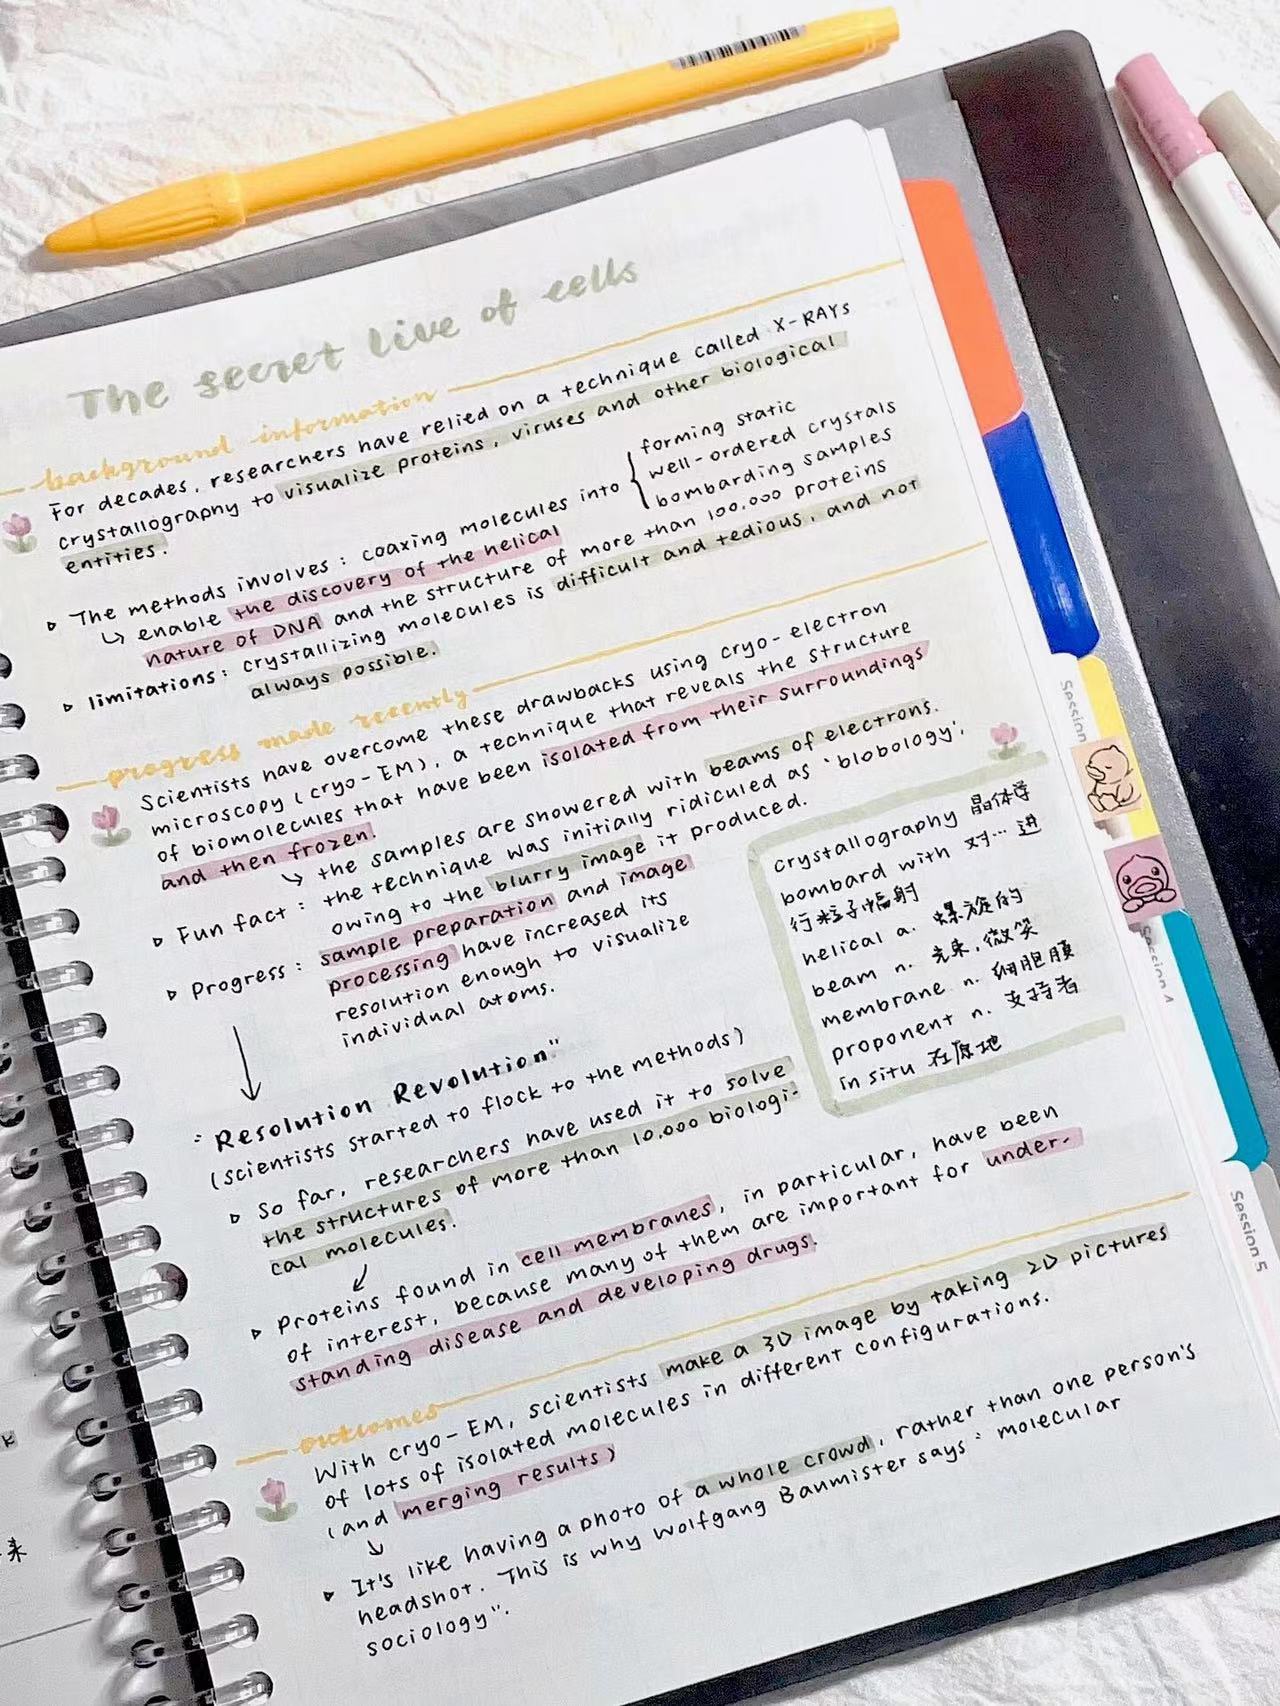 The secret live of cells
background information
For decades, researchers have relied on a technique called X-RAYs
crystallography to visualize proteins, viruses and other biological
entities.
▹ The methods involves: coaxing molecules into { forming static
well-ordered crystals
bombarding samples
↳ enable the discovery of the helical
nature of DNA and the structure of more than 100.000 proteins
▹ limitations: crystallizing molecules is difficult and tedious, and not
always possible.
progress made recently
Scientists have overcome these drawbacks using cryo-electron
microscopy (cryo-EM), a technique that reveals the structure
of biomolecules that have been isolated from their surroundings
and then frozen.
↳ the samples are showered with beams of electrons.
▹ Fun fact: the technique was initially ridiculed as 'blobology',
owing to the blurry image it produced.
▹ Progress: sample preparation and image
processing have increased its
resolution enough to visualize
individual atoms.
crystallography 晶体学
bombard with 对…进
行粒子辐射
helical a. 螺旋的
beam n. 光束,微笑
membrane n. 细胞膜
proponent n. 支持者
in situ 在原地
"Resolution Revolution"
(scientists started to flock to the methods)
▹ So far, researchers have used it to solve
the structures of more than 10.000 biologi-
cal molecules.
▹ Proteins found in cell membranes, in particular, have been
of interest, because many of them are important for under-
standing disease and developing drugs.
outcomes
With cryo-EM, scientists make a 3D image by taking 2D pictures
of lots of isolated molecules in different configurations.
(and merging results)
▹ It's like having a photo of a whole crowd, rather than one person's
headshot. This is why Wolfgang Baumister says: molecular
sociology".
Session
Session 4
Session 5
来